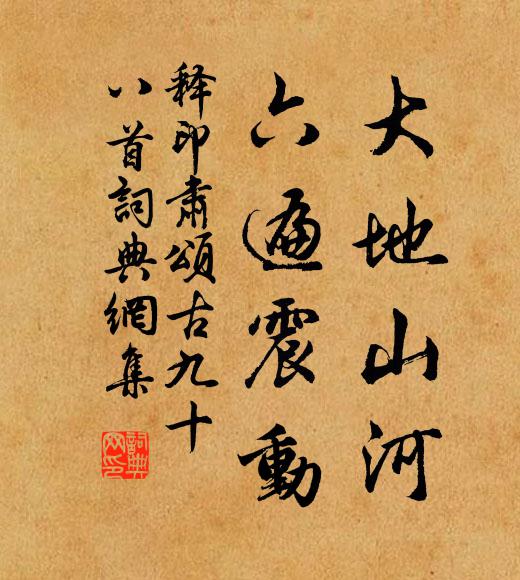 大地山河
六遍震動
释印肅頌古九十
八首詞典網集
詞典
网印